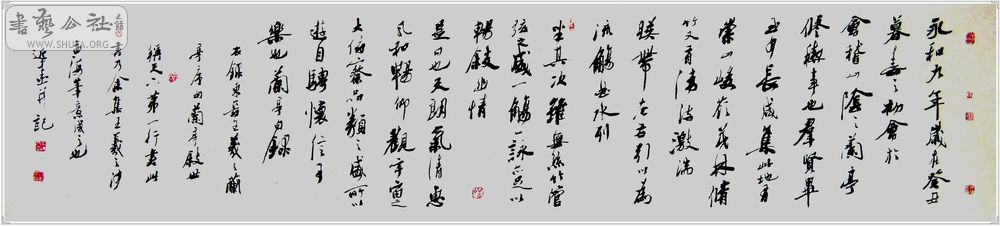 书艺公社
WWW.SHUFA.ORG
永和九年歲在癸丑
暮春之初會於
會稽山陰之蘭亭
修禊事也羣賢畢
至少長咸集此地有
崇山峻嶺茂林脩
竹又有清流激湍
暎帶左右引以為
流觴曲水列
坐其次雖無絲竹管
弦之盛一觴一詠亦足以
暢敘幽情
是日也天朗氣清惠
風和暢仰觀宇宙之
大俯察品類之盛所以
遊目騁懷信可
樂也蘭亭句錄
右錄東晉王羲之蘭
亭序因蘭亭敘世
稱天下第一行書此
書乃余集王羲之沙
孟海筆意成之也
并記